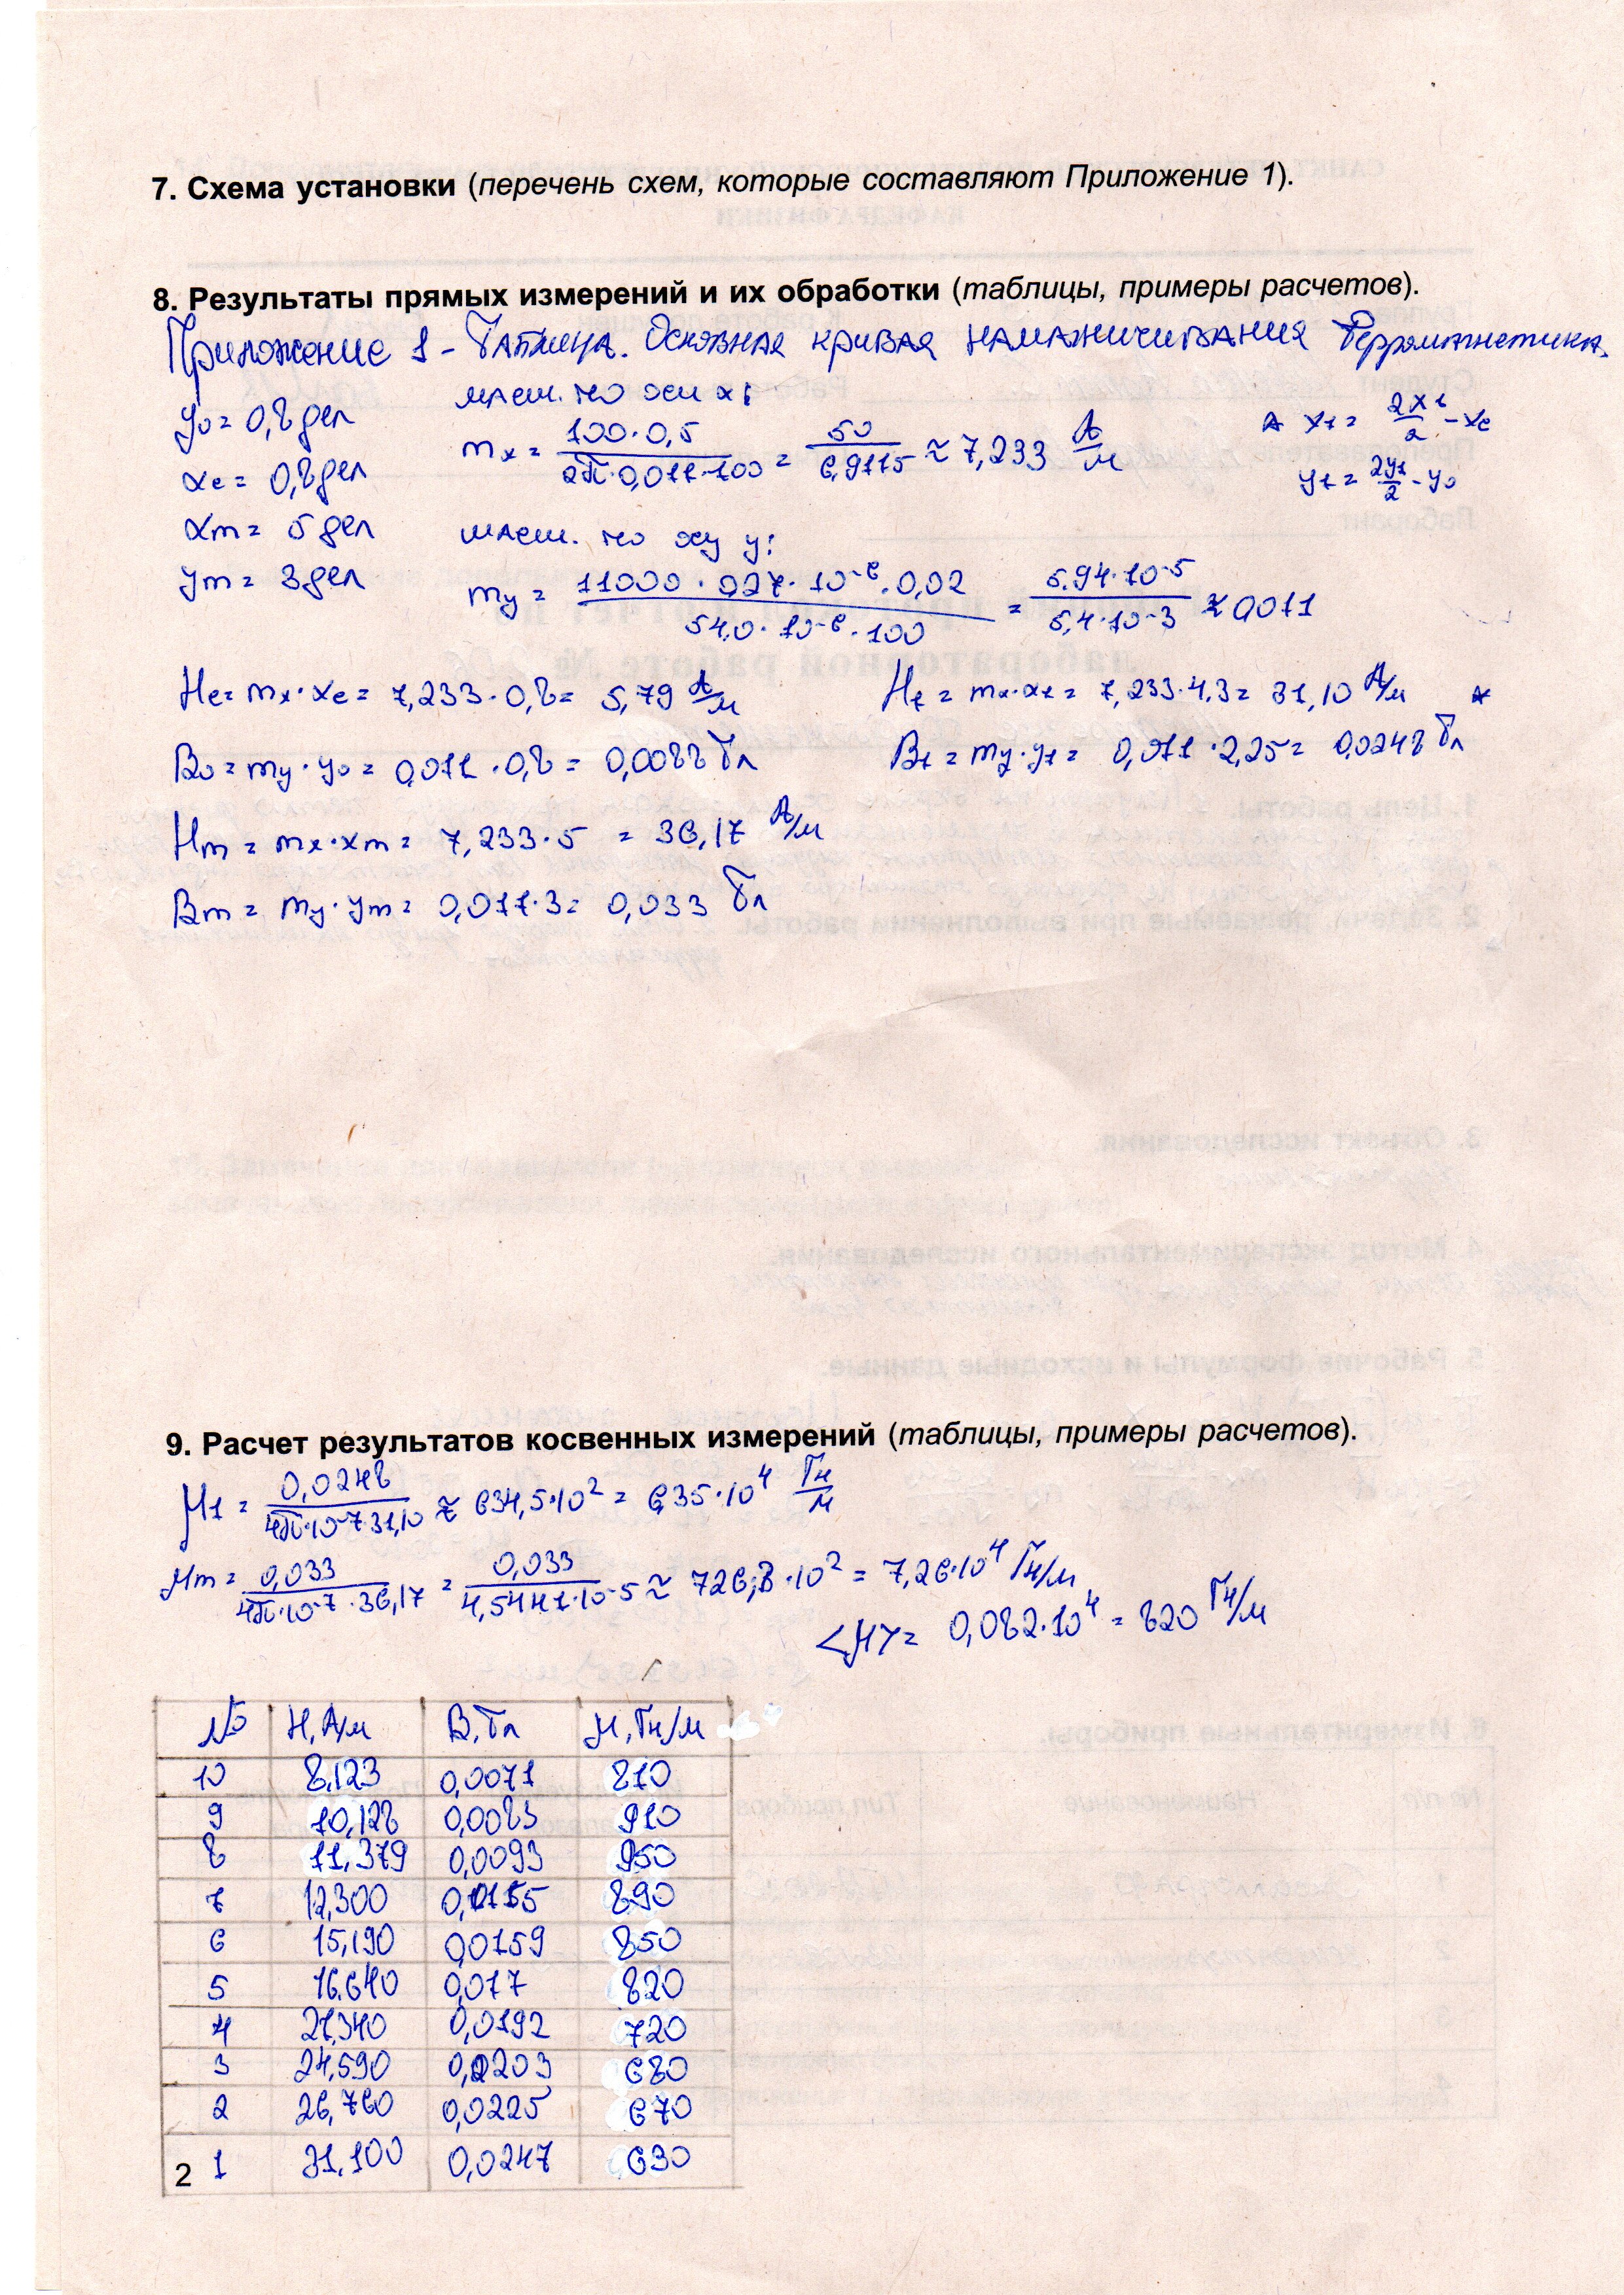 7. Схема установки (перечень схем, которые составляют Приложение 1).
8. Результаты прямых измерений и их обработки (таблицы, примеры расчетов).
Приложение 1 - Таблица. Основная кривая намагничивания ферромагнетика.
y₀ = 0,8 дел
xc = 0,8 дел
xm = 5 дел
ym = 3 дел
масш. по оси x:
mx = 100·0,5 / 2π·0,011·100 = 50 / 6,9115 ≈ 7,233 А/м
x₁ = 2x₁/2 - xc
y₁ = 2y₁/2 - y₀
масш. по оху y:
my = 11000·0,27·10⁻⁶·0,02 / 54,0·10⁻⁶·100 = 5.94·10⁻⁵ / 5,4·10⁻³ ≈ 0,011
Hc = mx·xc = 7,233·0,8 = 5,79 А/м
H₁ = mx·x₁ = 7,233·4,3 = 31,10 А/м
B₀ = my·y₀ = 0,011·0,8 = 0,0088 Тл
B₁ = my·y₁ = 0,011·2,25 = 0,0248 Тл
Hm = mx·xm = 7,233·5 = 36,17 А/м
Bm = my·ym = 0,011·3 = 0,033 Тл
9. Расчет результатов косвенных измерений (таблицы, примеры расчетов).
μ₁ = 0,0248 / 4π·10⁻⁷·31,10 ≈ 634,5·10² = 6,35·10⁴ Гн/м
μm = 0,033 / 4π·10⁻⁷·36,17 = 0,033 / 4,5441·10⁻⁵ ≈ 726,3·10² = 7,26·10⁴ Гн/м
<μ> = 0,082·10⁴ = 820 Гн/м
№ H, А/м B, Тл μ, Гн/м
10 8,123 0,0071 810
9 10,128 0,0083 910
8 11,379 0,0093 950
7 12,300 0,0155 890
6 15,190 0,0159 850
5 16.640 0,017 820
4 21,340 0,0192 720
3 24,590 0,0203 680
2 26,760 0,0225 670
1 31,100 0,0247 630
2